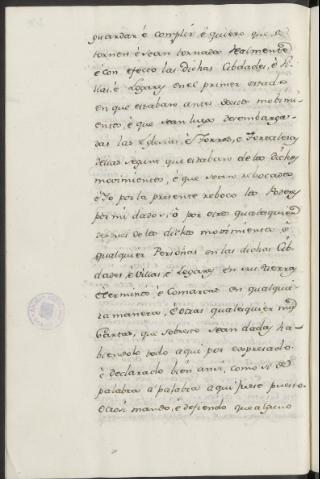 guardar é complir é quiero que se
tornen é sean tornadas Realmente
é con efecto las dichas Cibdades, é Vi-
llas, é Logares en el primer estado
en que estaban antes destos mobimi-
entos, é que sean luego desembarga-
das las Iglesias, é Torres, é Fortalezas
dellas segun que estaban de los dichos
movimientos, é que sean rebocados
é Yo por la presente reboco los Poderes
por mi dados, ó por otro qualesquier
despues de los dichos movimientos á
qualquier Personas en las dichas Cib-
dades é Villas, é Logares en sus tierras
é Terminos é Comarcas en qualquie-
ra manera, é otras qualesquier mis
Cartas, que sobresto sean dadas ha-
biendolo todo aqui por expresado
é declarado bien ansi, como si de
palabra á palabra aqui fuese puesto.
Otrosi mando, é defiendo que alguno